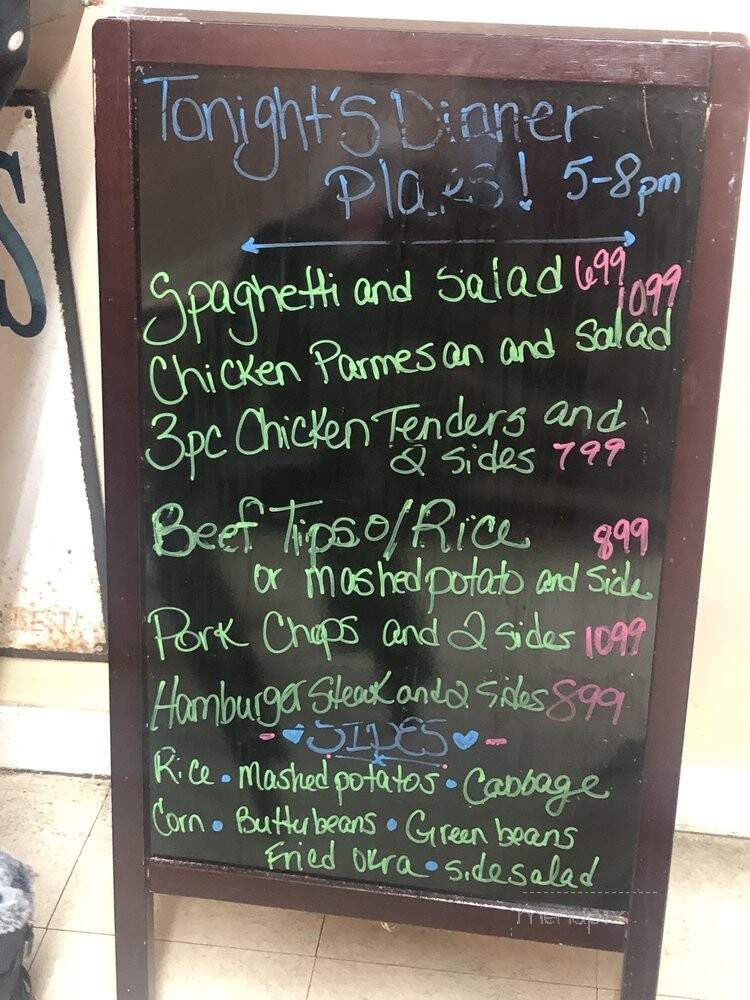 Tonight's Dinner
Plates! 5-8pm
Spaghetti and Salad 699
1099
Chicken Parmesan and Salad
3pc Chicken Tenders and
2 sides 799
Beef Tips o/Rice 899
or mashed potato and side
Pork Chops and 2 sides 1099
Hamburger Steak and 2 sides 899
SIDES
Rice • Mashed potatos • Cabbage
Corn • Butterbeans • Green beans
Fried okra • side salad